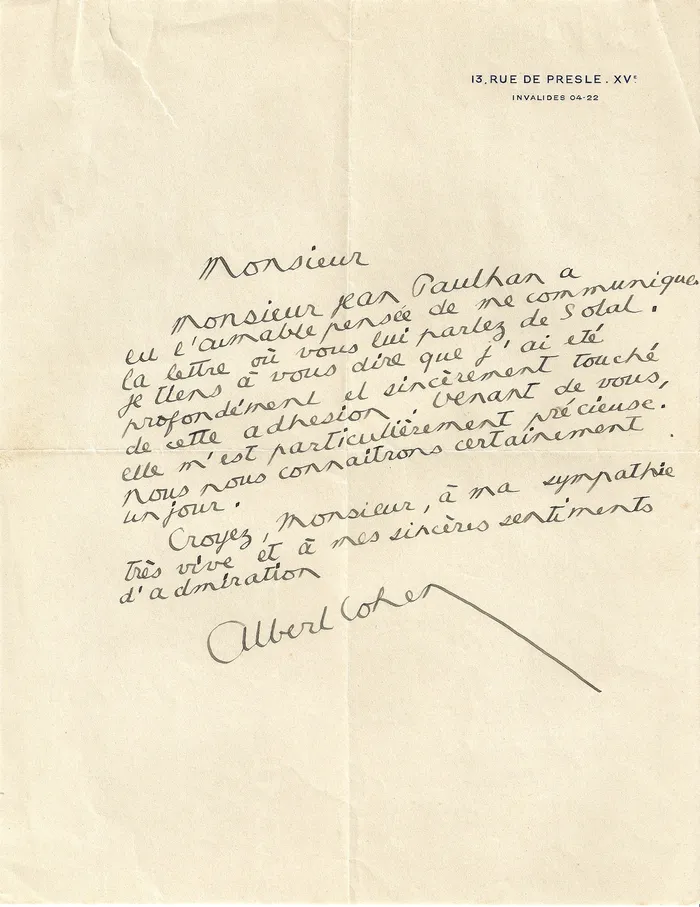 13, RUE DE PRESLE . XVe
INVALIDES 04-22
Monsieur
Monsieur Jean Paulhan a
eu l'aimable pensée de me communiquer
la lettre où vous lui parlez de Solal .
Je tiens à vous dire que j'ai eté
profondément et sincèrement touché
de cette adhesion . Venant de vous,
elle m'est particulièrement précieuse.
Nous nous connaitrons certainement
un jour .
Croyez, Monsieur, à ma sympathie
très vive et à mes sincères sentiments
d'admiration
Albert Cohen